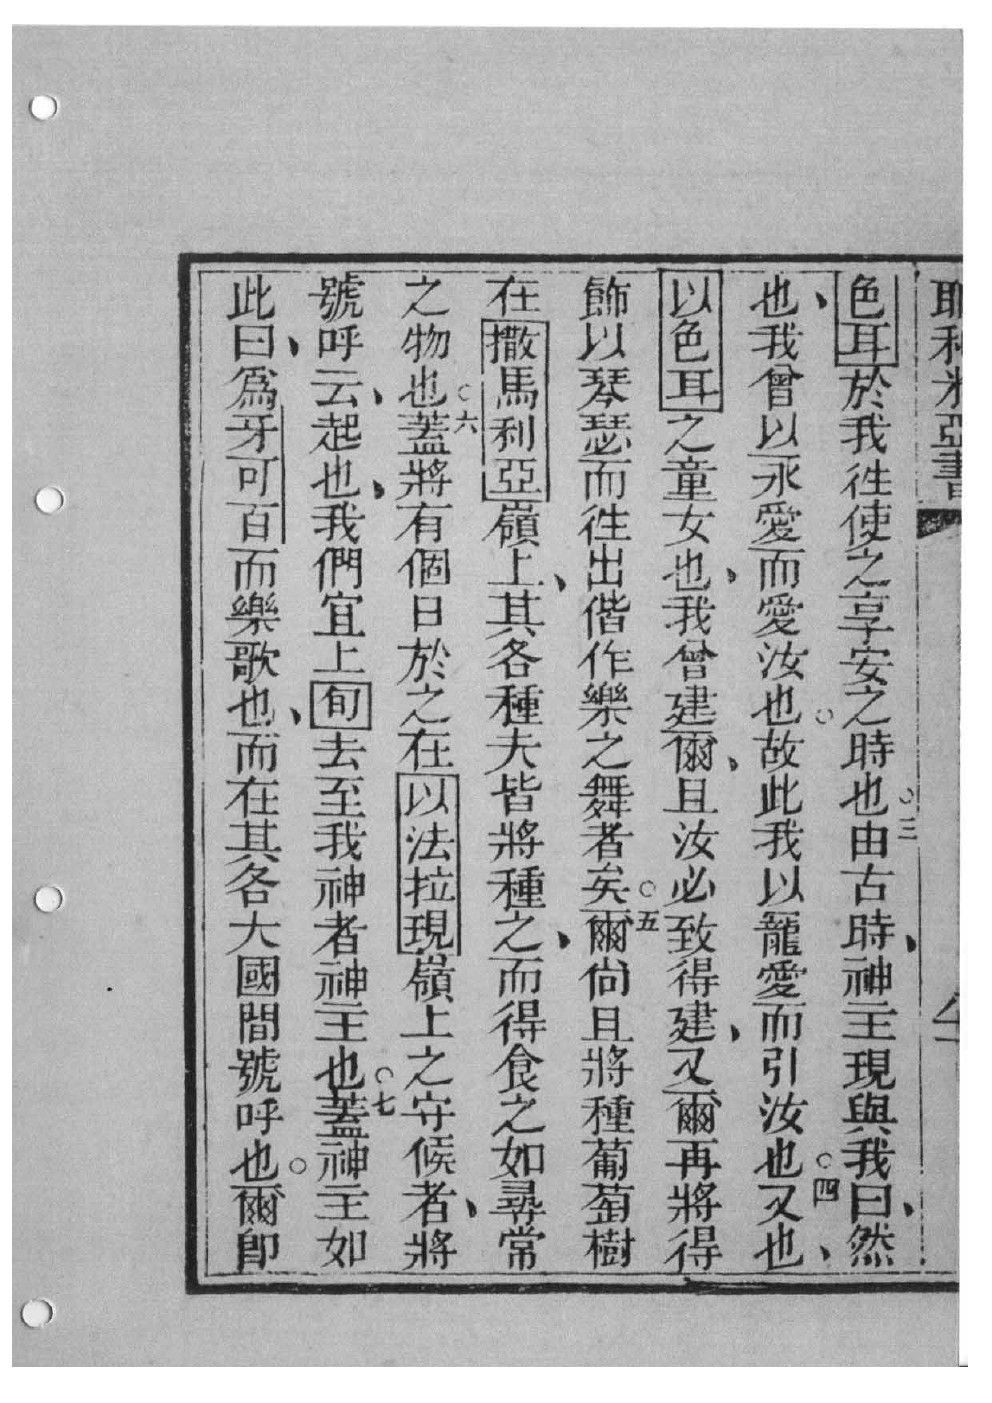 耶利米亞書
色耳於我徃使之享安之時也○三由古時、神主現與我曰、然
也、我曾以永愛而愛汝也○故此我以寵愛而引汝也○四又也、
以色耳之童女也、我曾建爾、且汝必致得建、又爾再將得
飾以琴瑟而徃出偕作樂之舞者矣○五爾尙且將種葡萄樹
在撒馬利亞嶺上、其各種夫皆將種之、而得食之如尋常
之物也○六蓋將有個日於之在以法拉現嶺上之守候者、將
號呼云、起也、我們宜上旬去至我神者神主也○七蓋神主如
此曰、爲牙可百而樂歌也、而在其各大國間號呼也○爾卽